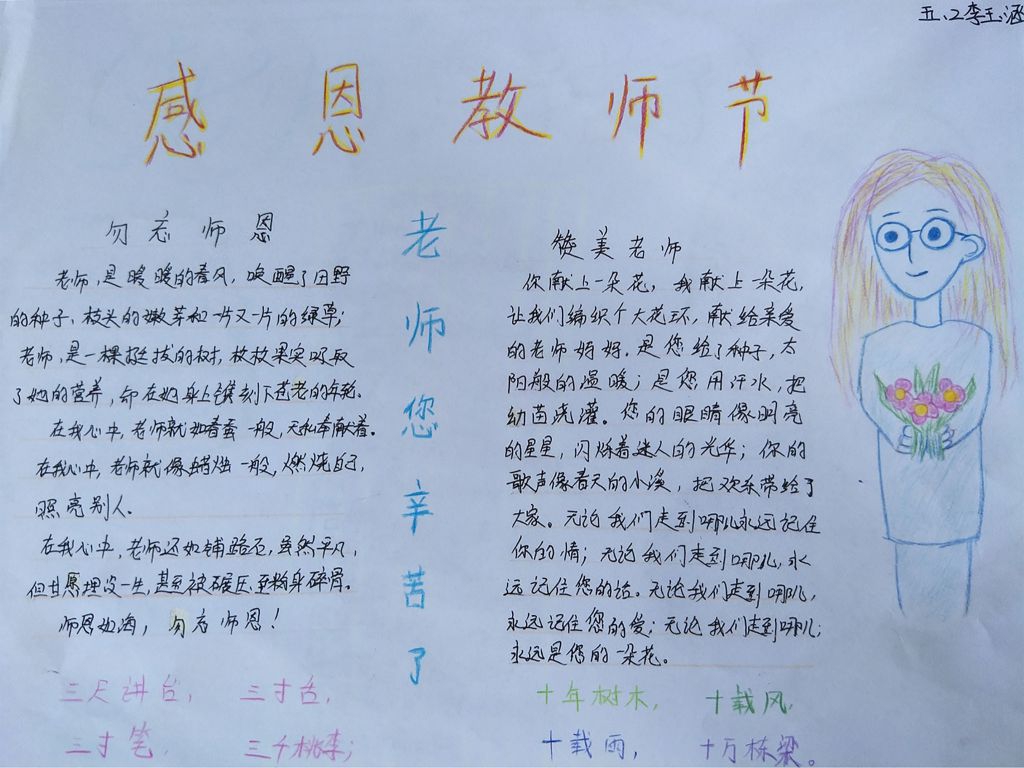 五.2李玉涵
感恩教师节
勿忘师恩
老师,是暖暖的春风,唤醒了田野
的种子、枝头的嫩芽和一片又一片的绿草;
老师,是一棵挺拔的树,枚枚果实吸取
了她的营养,却在她身上镌刻下苍老的年轮。
在我心中,老师就如春蚕一般,无私奉献着。
在我心中,老师就像蜡烛一般,燃烧自己,
照亮别人。
在我心中,老师还如铺路石,虽然平凡,
但甘愿埋没一生,甚至被碾压,至粉身碎骨。
师恩如海,勿忘师恩!
老师您辛苦了
赞美老师
你献上一朵花,我献上一朵花,
让我们编织个大花环,献给亲爱
的老师妈妈。是您给了种子,太
阳般的温暖;是您用汗水,把
幼苗浇灌。您的眼睛像明亮
的星星,闪烁着迷人的光华;你的
歌声像春天的小溪,把欢乐带给了
大家。无论我们走到哪儿永远记住
你的情;无论我们走到哪儿,永
远记住您的话。无论我们走到哪儿,
永远记住您的爱;无论我们走到哪儿;
永远是您的一朵花。
三尺讲台,三寸舌,
三寸笔,三千桃李;
十年树木,十载风,
十载雨,十万栋梁。